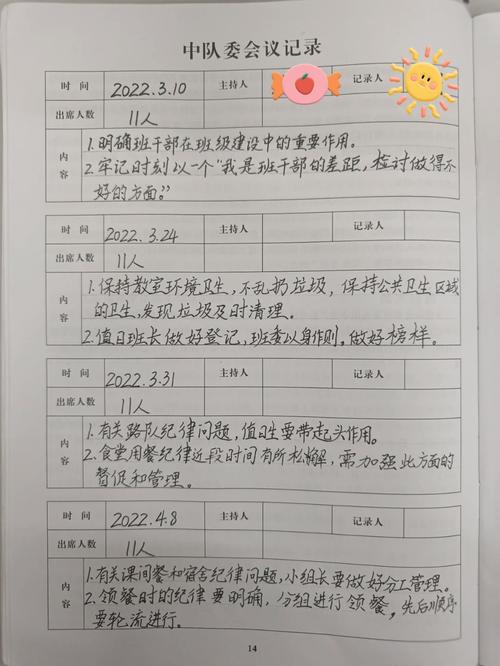 中队委会议记录
时 间 2022.3.10 主持人 记录人
出席人数 11人
内容 1.明确班干部在班级建设中的重要作用。
2.牢记时刻以一个“我是班干部的差距,检讨做得不
好的方面。”
时 间 2022.3.24 主持人 记录人
出席人数 11人
内容 1.保持教室环境卫生,不乱扔垃圾,保持公共卫生区域
的卫生,发现垃圾及时清理。
2.值日班长做好登记,班委以身作则。做好榜样。
时 间 2022.3.31 主持人 记录人
出席人数 11人
内容 1.有关路队纪律问题,值日生要带起头作用。
2.食堂用餐纪律近段时间有所松懈,需加强此方面的
督促和管理。
时 间 2022.4.8 主持人 记录人
出席人数 11人
内容 1.有关课间餐和宿舍纪律问题,小组长要做好分工管理。
2.领餐时的纪律要明确,分组进行领餐,先后顺序
要轮流进行。
14